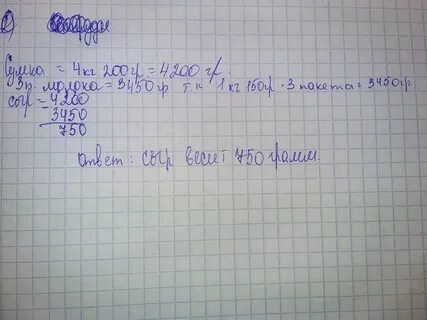 2)
Сумка = 4 кг 200 гр = 4200 гр.
3 п. молока = 3450 гр т.к. 1 кг 150 гр · 3 пакета = 3450 гр.
сыр = 4200
3450
750
Ответ: сыр весит 750 грамм.